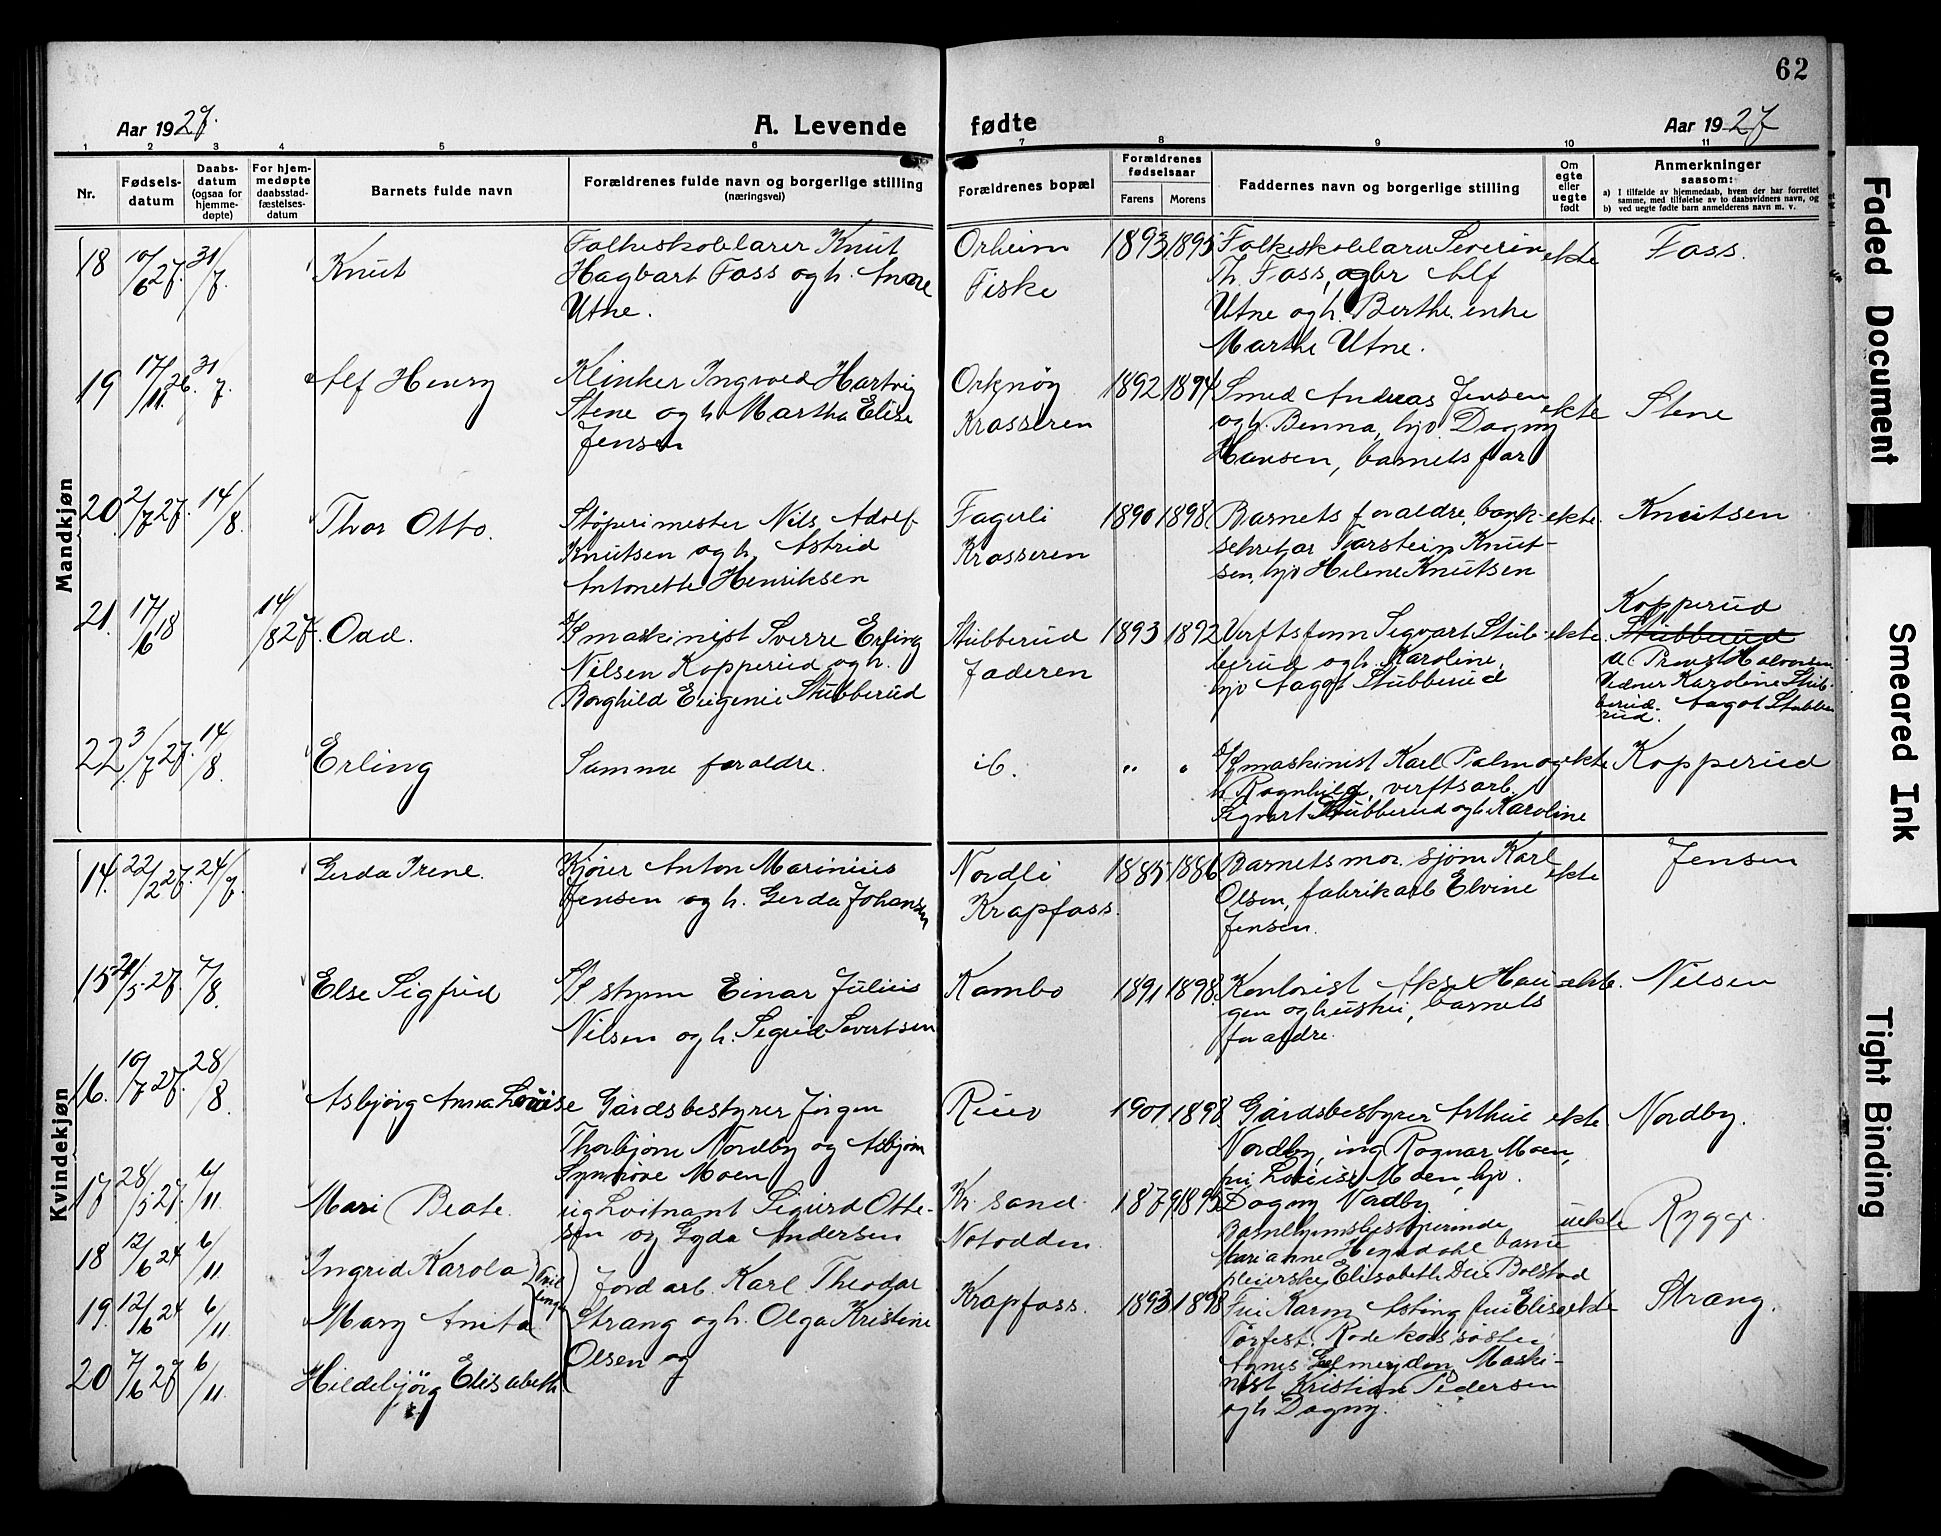 62
Aar 1927.
A. Levende fødte
Aar 1927
1 2 3 4 5 6 7 8 9 10 11
Nr.
Fødsels-
datum
Daabs-
datum
(ogsaa for
hjemme-
døpte)
For hjem-
medøpte
daabsstad-
fæstelses-
datum
Barnets fulde navn
Forældrenes fulde navn og borgerlige stilling
(næringsvei)
Forældrenes bopæl
Forældrenes
fødselsaar
Farens Morens
Faddernes navn og borgerlige stilling
Om
egte
eller
uegte
født
Anmerkninger
saasom:
a) I tilfælde av hjemmedaab, hvem der har forrettet
samme, med tilføielse av to daabsvidners navn, og
b) ved uegte fødte barn anmelderens navn m. v.
Mandkjøn
18 10/6 27. 31/7. Knut
Folkeskolelærer Knut
Hagbart Foss og h.
Utne.
Orheim
Fiske
1893 1895
Folkeskolelærer Severin
Th. Foss, Alf
Utne og h. Berthe, enke
Marthe Utne.
ekte
Foss.
19 17/11 26. 31/7. Alf Henry
Klinker Ingvod Hartvig
Stene og h. Martha Elise
Jensen
Orknøy
Krosseren
1892 1894
Smed Andreas Jensen
og h. Benna, hjv. Dagny
Hansen, barnets far
ekte
Stene
20. 2/7 27. 14/8. Thor Otto.
Støperimester Nils Adolf
Knutsen og h. Astrid
Antonette Henriksen
Fagerli
Krosseren
1890 1898
Barnets forældre, bank-
sekretær Torstein Knut-
sen, hjv Helene Knutsen
ekte.
Knutsen
21. 17/6 18 14/8 27. Odd.
maskinist Sverre Erling
Nilsen Kopperud og h.
Borghild Eugenie Stubberud
Stubberud
Jaderen
1893 1892
Verftsform Sigvart Stub-
berud og h. Karoline,
hjv Aagot Stubberud
ekte.
Kopperud
Stubberud
Provst Halvorsen
Vidner Karoline Stub-
berud. Aagot Stubbe
rud.
22. 3/7 27. 14/8. Erling
Samme forældre.
ib.
" "
maskinist Karl Palm og
h. Ragnhild, verftsarb.
Sigvart Stubberud og h. Karoline
ekte
Kopperud
Kvindekjøn
14. 22/2 27. 24/7. Gerda Irene.
Kjører Anton Marinius
Jensen og h. Gerda Johansen
Nordli
Krapfoss.
1885 1886
Barnets mor. sjøm Karl
Olsen, fabrikarb Elvine
Jensen.
ekte
Jensen
15 21/5 27. 7/8. Else Sigfrid
styrm Einar Julius
Nilsen og h. Sigrid Sivertsen
Kambo
1891 1898
Kontorist Aksel Hau-
gen og hustru, barnets
forældre.
ekte.
Nilsen
16. 10/7 27. 28/8. Asbjørg Anna Louise
Gårdsbestyrer Jørgen
Thorbjørn Nordby og Asbjørn
Synnøve Moen
1901 1898
Gårdsbestyrer Arthur
Nordby, ing Ragnar Moen,
fru Louise Moen, hjv.
Dagny Nordby
ekte
Nordby.
17 28/5 27. 6/11. Mari Beate.
Løitnant Sigurd Otte-
sen og Gyda Andersen
Kr. sand.
Notodden
1879 1895
Barnehjemsbestyrerinde
Marianne barne
pleierske Elisabeth Bolstad
uekte
Rygge.
18 12/6 24 6/11. Ingrid Karola
19. 12/6 24 6/11. Mary Anita
Tvil
linger
Jordarb. Karl Theodor
Strang og h. Olga Kristine
Olsen og
Krapfoss.
1893 1898
Fru Karen fru Elise
Røde kors søster
Agnes Maski-
nist Kristian Pedersen
og h Dagny.
ekte
Strang.
20 7/6 27 6/11. Hildebjørg Elisabeth
Faded Document
Smeared Ink
Tight Binding